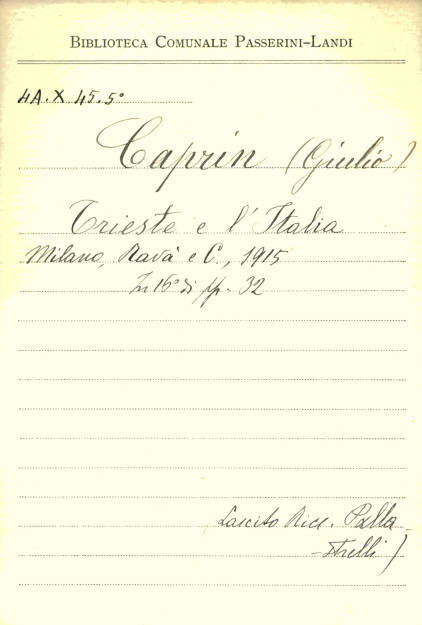 BIBLIOTECA COMUNALE PASSERINI-LANDI
4A.X 45.5°
Caprin (Giulio)
Trieste e l'Italia
Milano, Ravà e C., 1915
In 16° di pp. 32
Lascito Ricc. Palla-
-strelli)